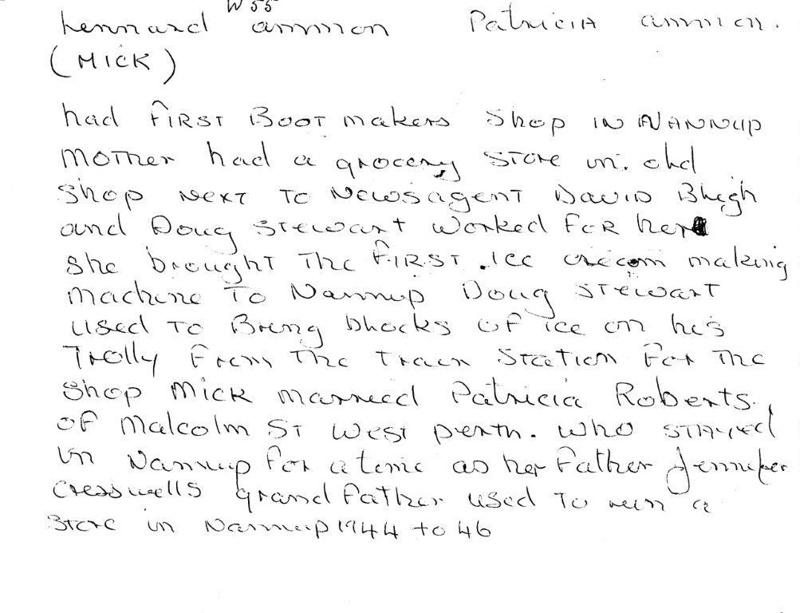 W55
Lennard Ammon Patricia Ammon.
(MICK)
had FIRST BOOT makers Shop IN NANNUP
MOTHER had a grocery STORE in. old
Shop NEXT TO Newsagent DAVID Bligh
and Doug STEWART worked FOR her
She brought The FIRST .Ice cream making
machine TO Nannup Doug STEWART
used TO Bring blocks of ice on his
Trolly From The Train Station For The
Shop Mick married Patricia Roberts.
OF Malcolm ST West Perth. Who STAYED
in Nannup For a time as her Father Jennifer
Cresswells grand Father used To run a
Store in Nannup 1944 to 46